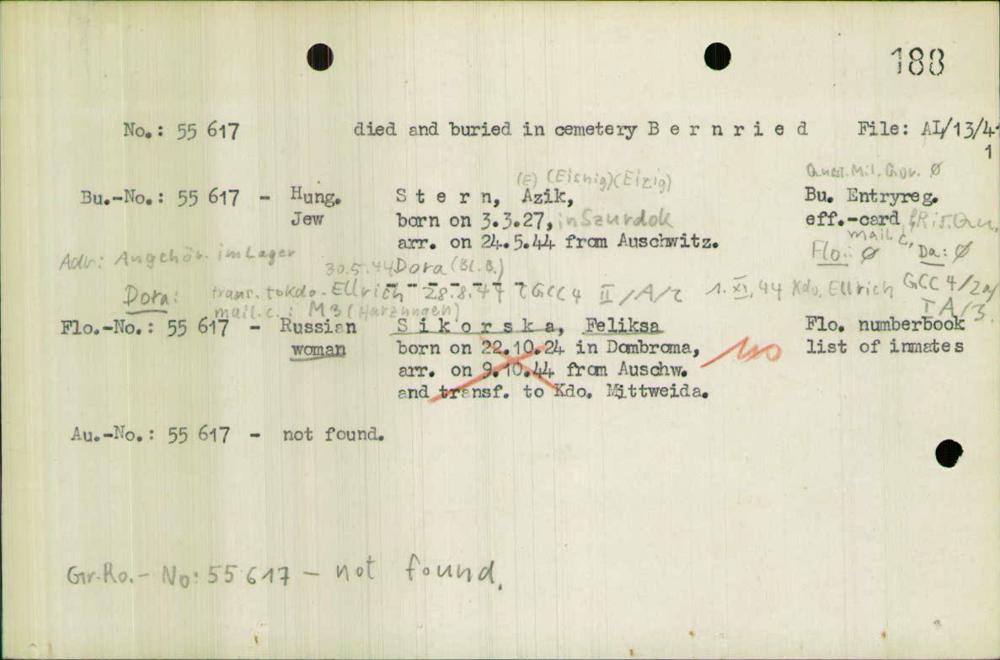 188
No.: 55 617 died and buried in cemetery B e r n r i e d File: AI/13/41
1
(E) (Eisnig)(Eizig) Quest. Mil. Gov. Ø
Bu.-No.: 55 617 - Hung. S t e r n, Azik, Bu. Entryreg.
Jew born on 3.3.27, in Szurdok eff.-card
arr. on 24.5.44 from Auschwitz. mail c,
Adr: Angehör. im Lager Flo.: Ø Da: Ø
30.5.44 Dora (Bl. 8.)
Dora: trans. to Kdo. Ellrich 28.8.44 GCC 4 II/A/2 1. XI, 44 Kdo. Ellrich GCC 4/2a/
mail.c.: M3 (Harzungen) IA/3.
Flo.-No.: 55 617 - Russian S i k o r s k a, Feliksa Flo. numberbook
woman born on 22.10.24 in Dombroma, no list of inmates
arr. on 9.10.44 from Auschw.
and transf. to Kdo. Mittweida.
Au.-No.: 55 617 - not found.
Gr.Ro.- No: 55 617 - not found.